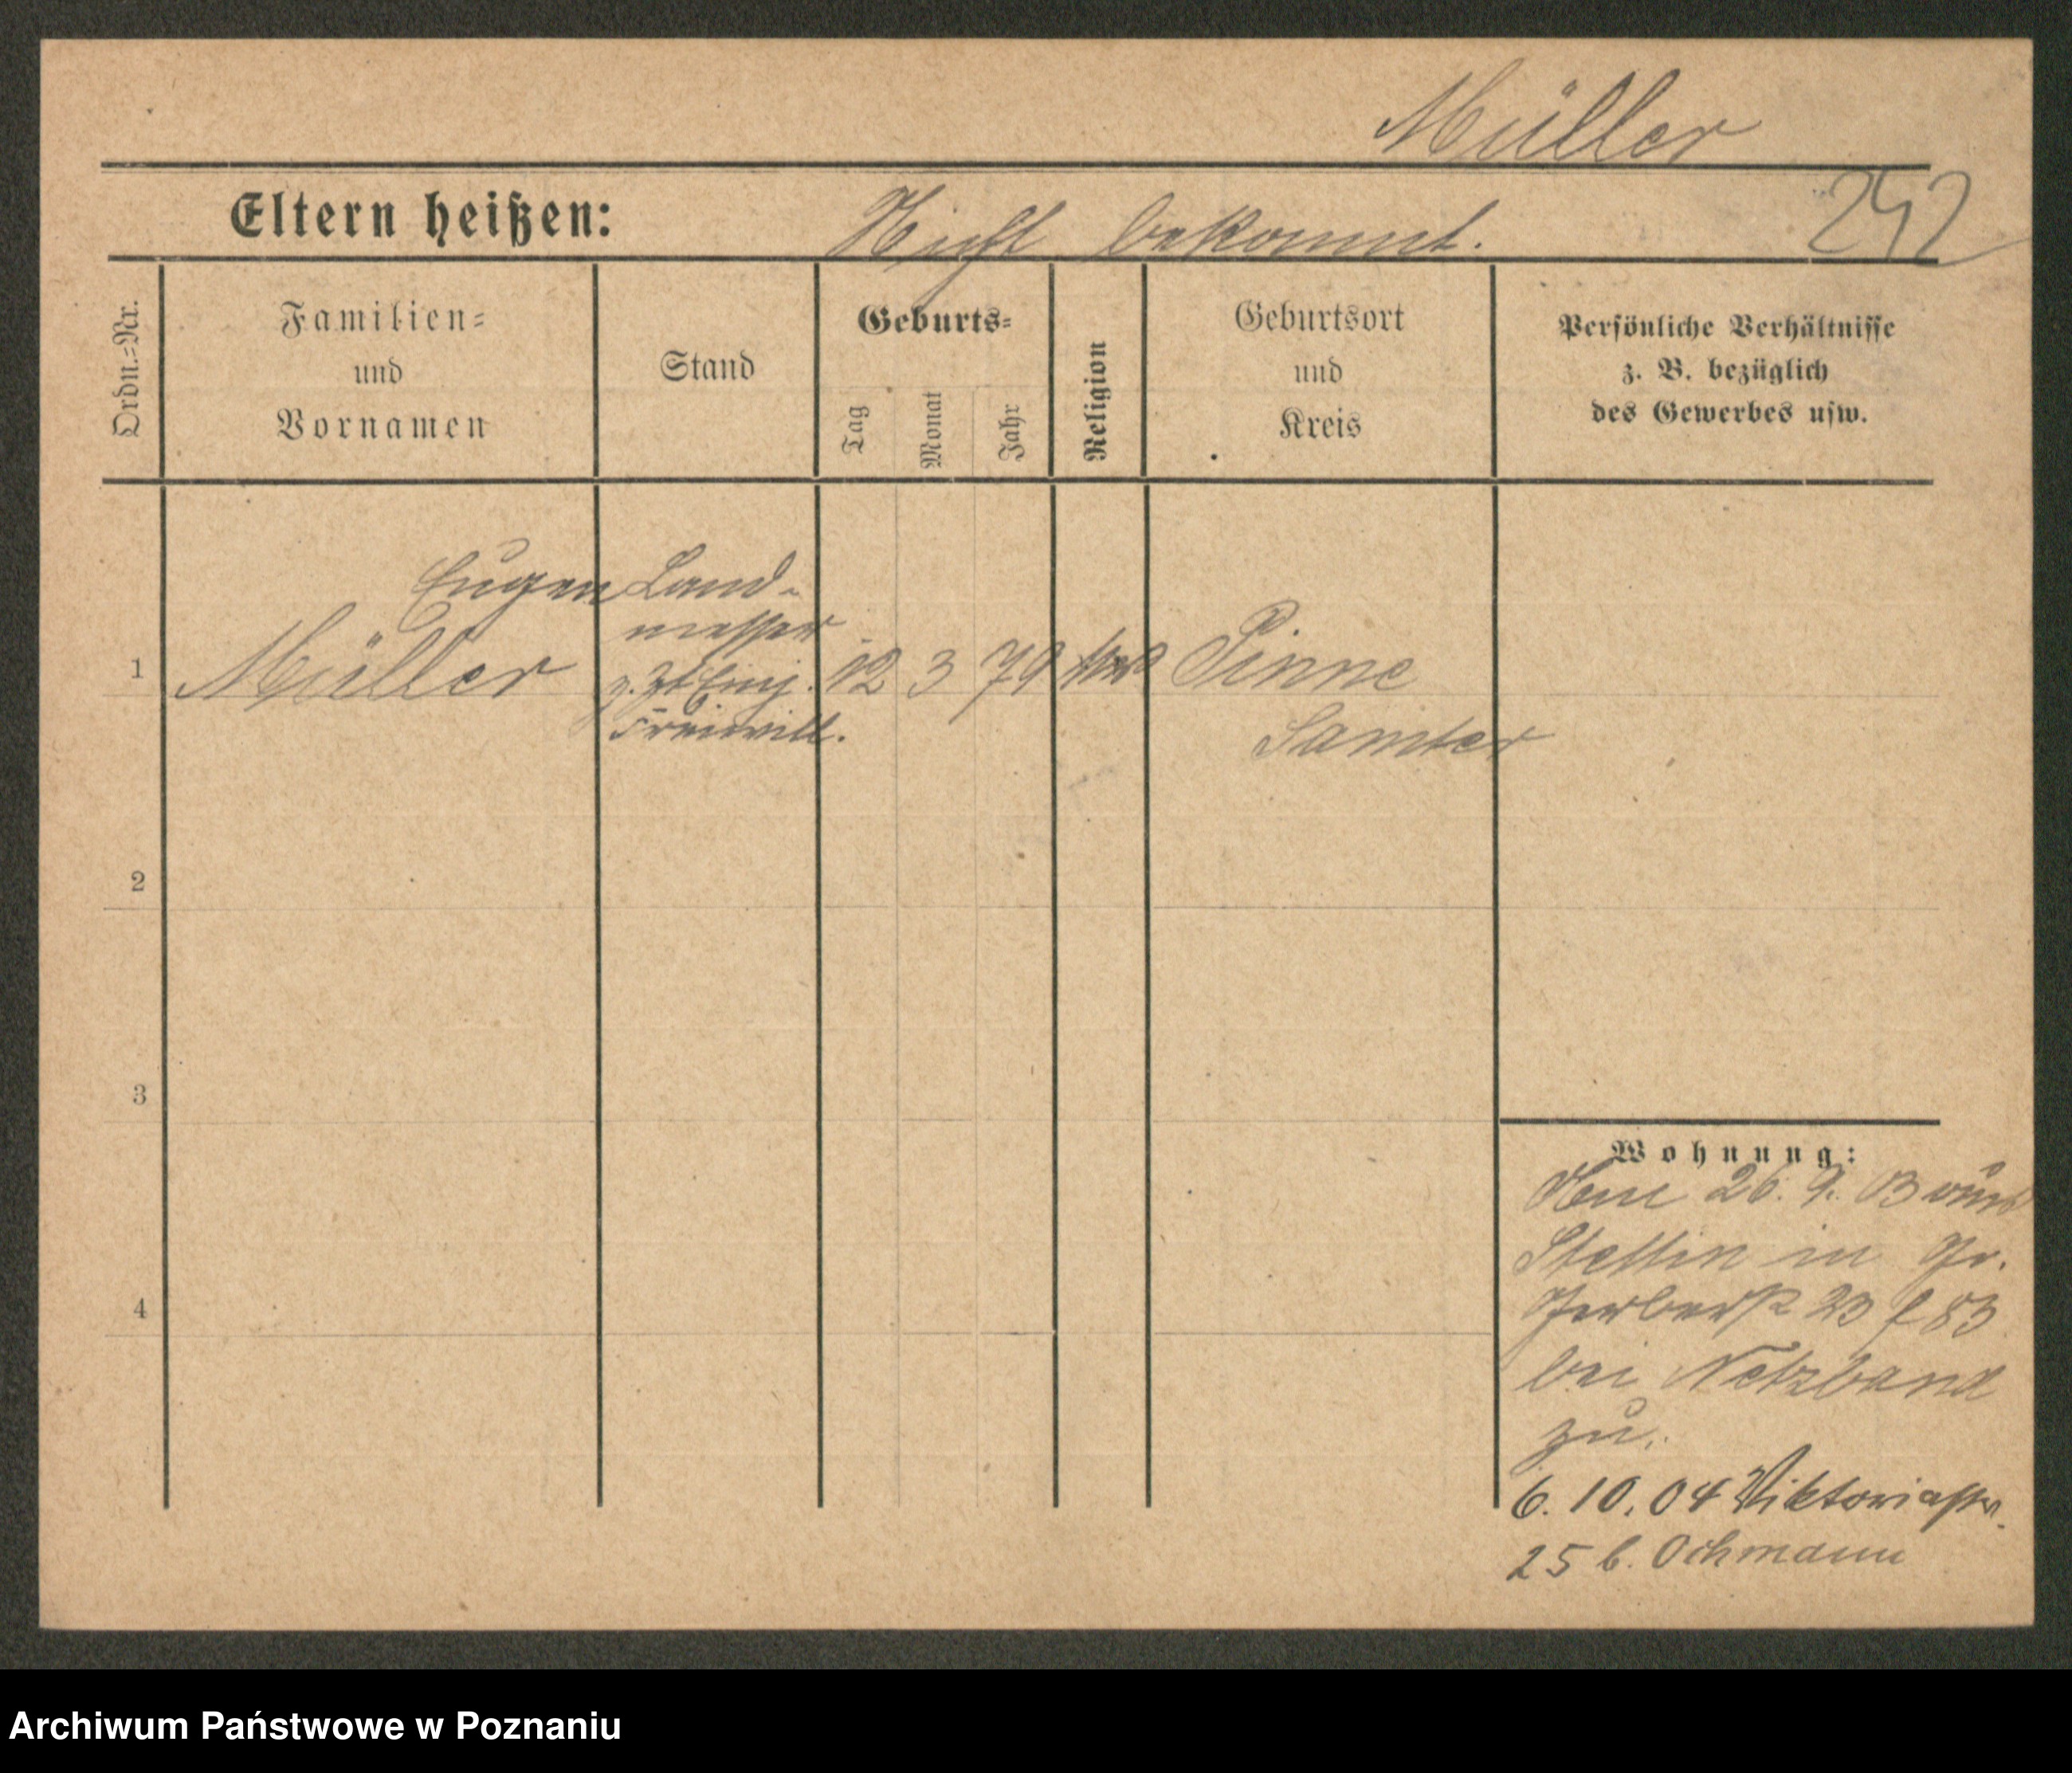 Müller
Eltern heißen: Nicht bekannt.
242
Ordn.=Nr.
Familien=
und
Vornamen
Stand
Geburts=
Tag
Monat
Jahr
Religion
Geburtsort
und
Kreis
Persönliche Verhältnisse
z. B. bezüglich
des Gewerbes usw.
Eugen
Müller
Land-
messer
z. Zt Einj.
Freiwill.
1
12 3 79
Pinne
Samter
2
3
4
Wohnung:
26. 9. 03
Stettin in Gr.
Gerberst 23
bei Netzband
zu.
6. 10. 04 Viktoriastr.
25 b. Ochmann
Archiwum Państwowe w Poznaniu